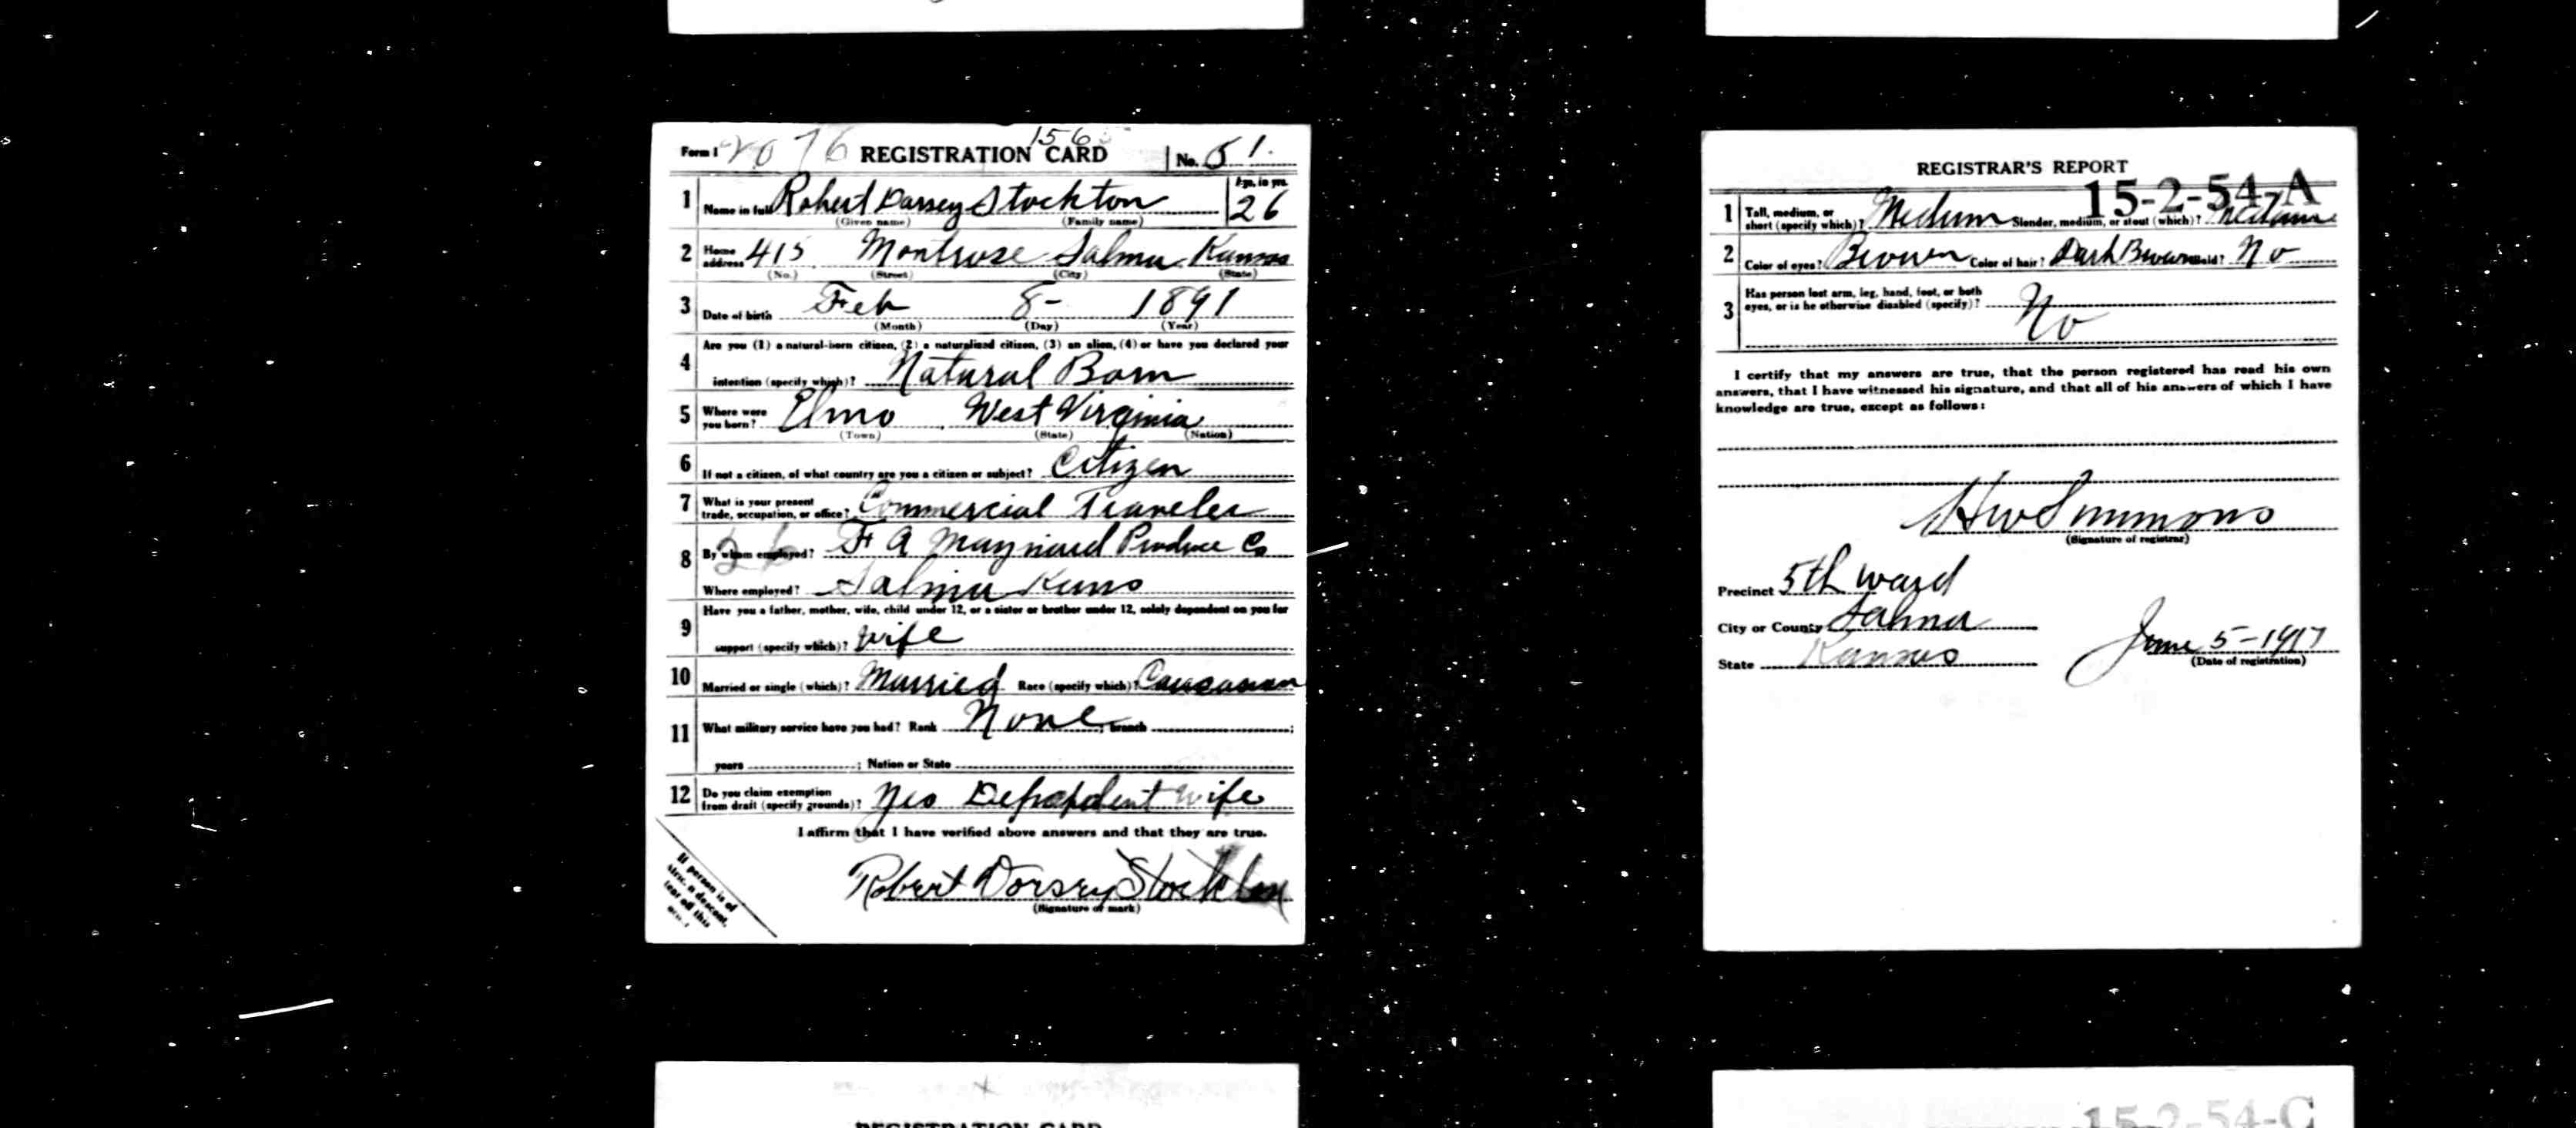 1565
Form 1 2076 REGISTRATION CARD No. 51.
1 Name in full Robert Dorsey Stockton Age, in yrs. 26
(Given name) (Family name)
2 Home address 415 Montrose Salina Kansas
(No.) (Street) (City) (State)
3 Date of birth Feb 8- 1891
(Month) (Day) (Year)
Are you (1) a natural-born citizen, (2) a naturalized citizen, (3) an alien, (4) or have you declared your
4 intention (specify which)? Natural Born
5 Where were you born? Elmo West Virginia
(Town) (State) (Nation)
6 If not a citizen, of what country are you a citizen or subject? Citizen
7 What is your present trade, occupation, or office? Commercial Traveler
8 By whom employed? F A Maynard Produce Co
26
Where employed? Salina Kans
Have you a father, mother, wife, child under 12, or a sister or brother under 12, solely dependent on you for
9 support (specify which)? wife
10 Married or single (which)? Married Race (specify which)? Caucasian
11 What military service have you had? Rank None ; branch ;
years ; Nation or State
12 Do you claim exemption from draft (specify grounds)? Yes Dependent wife
I affirm that I have verified above answers and that they are true.
Robert Dorsey Stockton
(Signature or mark)
If person is of
descent,
tear off this
REGISTRAR'S REPORT
15-2-54-A
1 Tall, medium, or short (specify which)? Medium Slender, medium, or stout (which)? Medium
2 Color of eyes? Brown Color of hair? Dark Brown Bald? No
3 Has person lost arm, leg, hand, foot, or both eyes, or is he otherwise disabled (specify)? No
I certify that my answers are true, that the person registered has read his own
answers, that I have witnessed his signature, and that all of his answers of which I have
knowledge are true, except as follows:
HW Simmons
(Signature of registrar)
Precinct 5th ward
City or County Salina
State Kansas
June 5-1917
(Date of registration)
REGISTRATION CARD
15-2-54-C